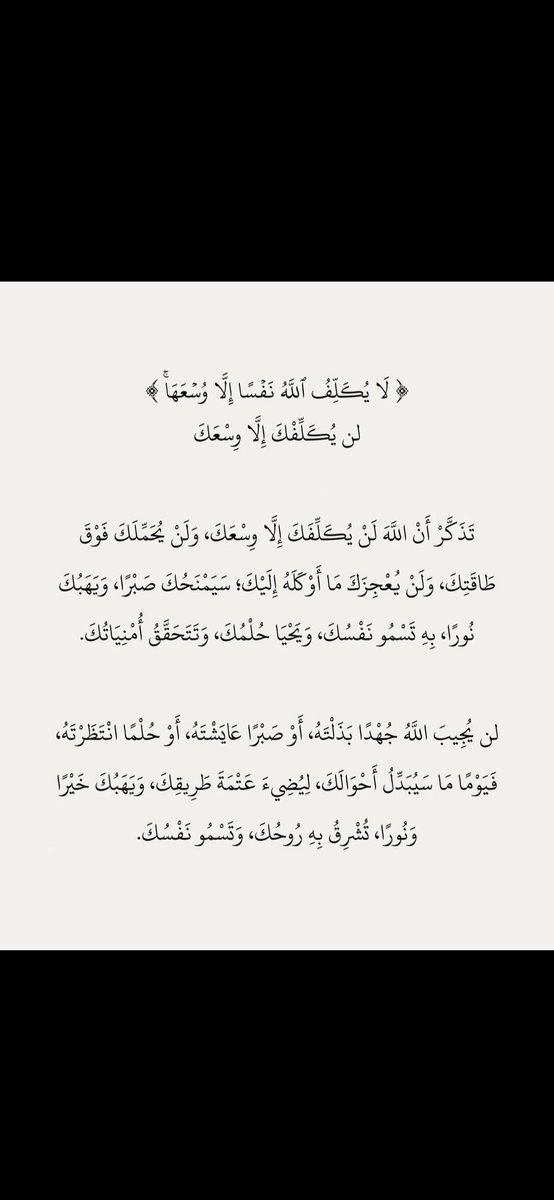 ﴿ لَا يُكَلِّفُ ٱللَّهُ نَفْسًا إِلَّا وُسْعَهَاۚ ﴾
لن يُكَلِّفْكَ إِلَّا وِسْعَكَ
تَذَكَّرْ أَنْ اللَّهَ لَنْ يُكَلِّفَكَ إِلَّا وِسْعَكَ، وَلَنْ يُحَمِّلَكَ فَوْقَ
طَاقَتِكَ، وَلَنْ يُعْجِزَكَ مَا أَوْكَلَهُ إِلَيْكَ؛ سَيَمْنَحُكَ صَبْرًا، وَيَهَبُكَ
نُورًا، بِهِ تَسْمُو نَفْسُكَ، وَيَحْيَا حُلْمُكَ، وَتَتَحَقَّقُ أُمْنِيَاتُكَ.
لن يُجِيبَ اللَّهُ جُهْدًا بَذَلْتَهُ، أَوْ صَبْرًا عَايَشْتَهُ، أَوْ حُلْمًا انْتَظَرْتَهُ،
فَيَوْمًا مَا سَيُبَدِّلُ أَحْوَالَكَ، لِيُضِيءَ عَتْمَةَ طَرِيقِكَ، وَيَهَبُكَ خَيْرًا
وَنُورًا، تُشْرِقُ بِهِ رُوحُكَ، وَتَسْمُو نَفْسُكَ.